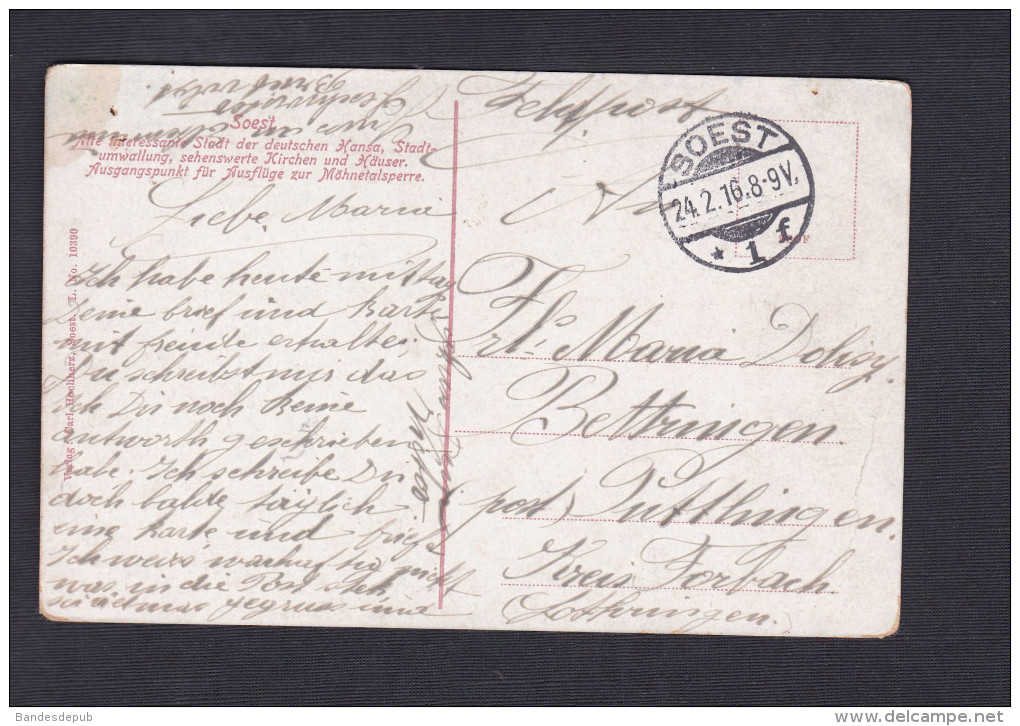 Soest.
Alte interessante Stadt der deutschen Hansa, Stadt-
umwallung, sehenswerte Kirchen und Häuser.
Ausgangspunkt für Ausflüge zur Möhnetalsperre.
Verlag Carl Hochherz, Soest. L. No. 10390
Liebe Maria
Ich habe heute mittag
Deine brief und Karte
mit freude erhalte,
Du schreibst mir das
ich Dir noch keine
antworth geschrieben
habe. Ich schreibe Dir
doch balde täglich
eine Karte und brief
Ich weis warhaftig nicht
was in die Post steh
gegruss und
Feldpost
SOEST
24.2.16.8-9V.
* 1 f
An
Frl. Maria Dohsy.
Bettringen.
(post) Püttlingen.
Kreis Forbach
Lothringen.
Bandesdepub
www.delcampe.net